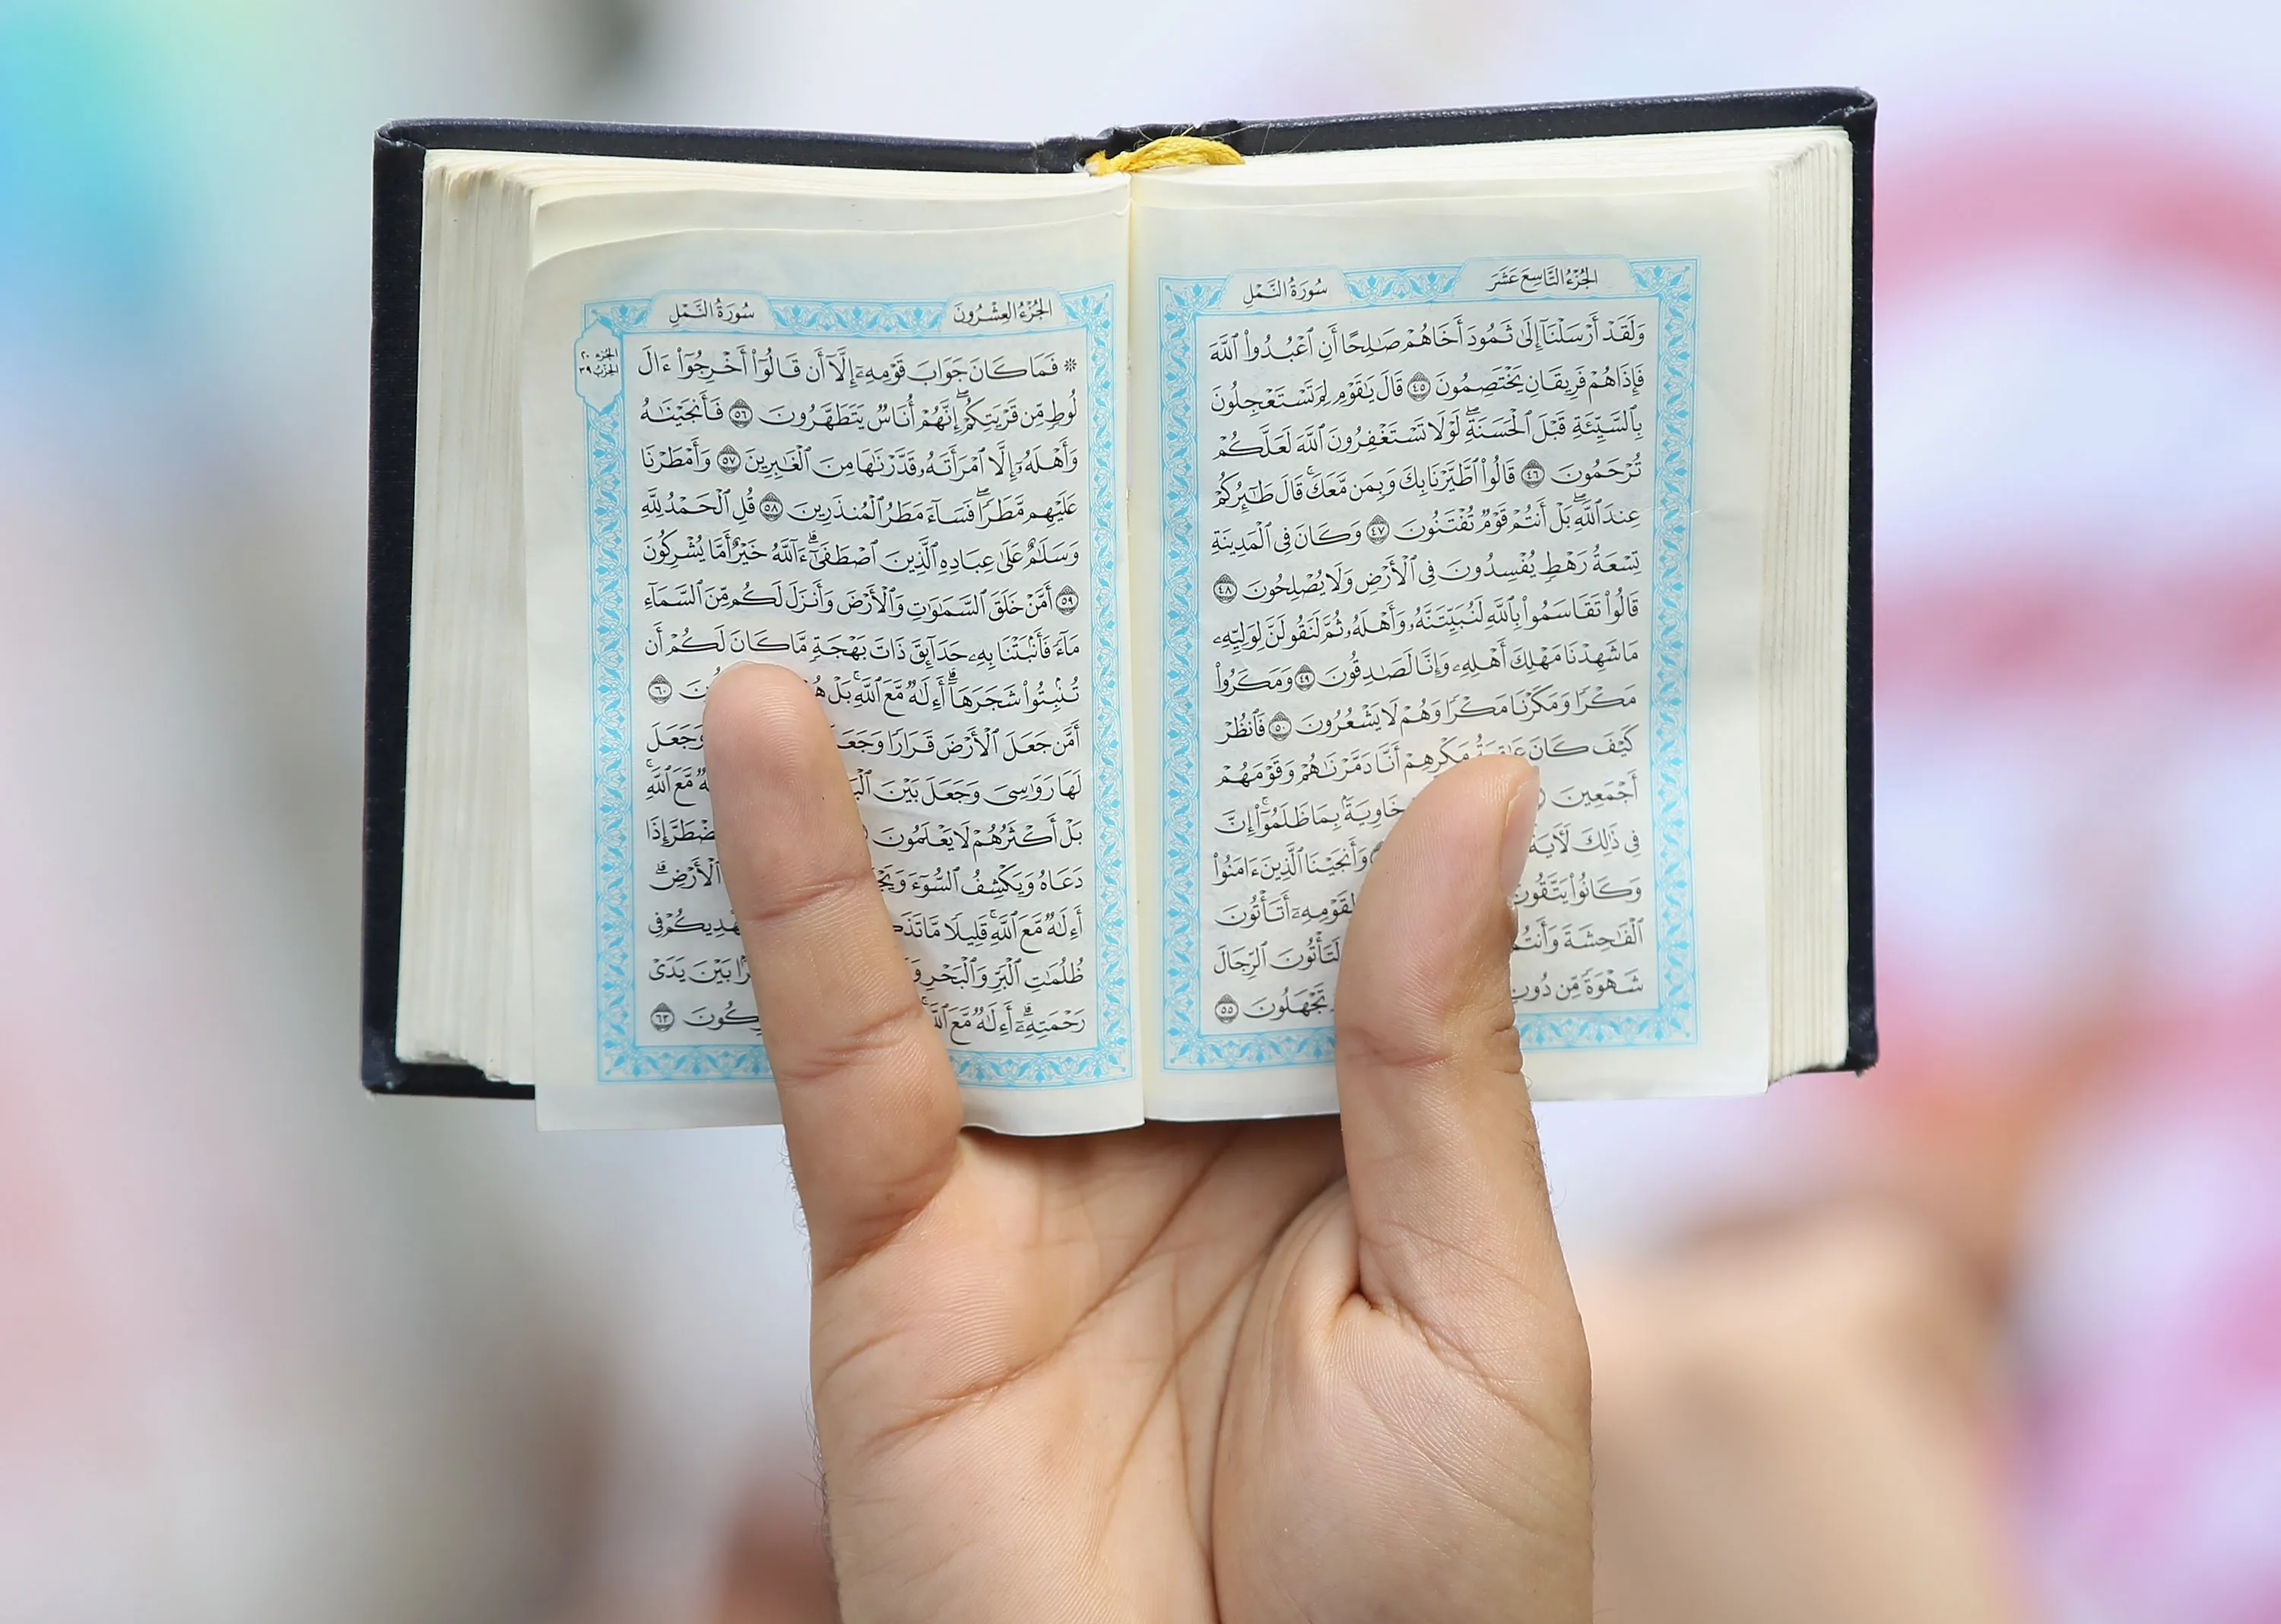 الجُزْءُ التَّاسِعَ عَشَرَ
سُورَةُ النَّمْلِ
وَلَقَدْ أَرْسَلْنَآ إِلَىٰ ثَمُودَ أَخَاهُمْ صَٰلِحًا أَنِ ٱعْبُدُوا۟ ٱللَّهَ
فَإِذَا هُمْ فَرِيقَانِ يَخْتَصِمُونَ ٤٥ قَالَ يَٰقَوْمِ لِمَ تَسْتَعْجِلُونَ
بِٱلسَّيِّئَةِ قَبْلَ ٱلْحَسَنَةِ ۖ لَوْلَا تَسْتَغْفِرُونَ ٱللَّهَ لَعَلَّكُمْ
تُرْحَمُونَ ٤٦ قَالُوا۟ ٱطَّيَّرْنَا بِكَ وَبِمَن مَّعَكَ ۚ قَالَ طَٰٓئِرُكُمْ
عِندَ ٱللَّهِ ۖ بَلْ أَنتُمْ قَوْمٌ تُفْتَنُونَ ٤٧ وَكَانَ فِى ٱلْمَدِينَةِ
تِسْعَةُ رَهْطٍ يُفْسِدُونَ فِى ٱلْأَرْضِ وَلَا يُصْلِحُونَ ٤٨
قَالُوا۟ تَقَاسَمُوا۟ بِٱللَّهِ لَنُبَيِّتَنَّهُۥ وَأَهْلَهُۥ ثُمَّ لَنَقُولَنَّ لِوَلِيِّهِۦ
مَا شَهِدْنَا مَهْلِكَ أَهْلِهِۦ وَإِنَّا لَصَٰدِقُونَ ٤٩ وَمَكَرُوا۟
مَكْرًا وَمَكَرْنَا مَكْرًا وَهُمْ لَا يَشْعُرُونَ ٥٠ فَٱنظُرْ
كَيْفَ كَانَ عَٰقِبَةُ مَكْرِهِمْ أَنَّا دَمَّرْنَٰهُمْ وَقَوْمَهُمْ
أَجْمَعِينَ خَاوِيَةًۢ بِمَا ظَلَمُوٓا۟ ۗ إِنَّ
فِى ذَٰلِكَ لَءَايَةً وَأَنجَيْنَا ٱلَّذِينَ ءَامَنُوا۟
وَكَانُوا۟ يَتَّقُونَ لِقَوْمِهِۦٓ أَتَأْتُونَ
ٱلْفَٰحِشَةَ وَأَنتُمْ لَتَأْتُونَ ٱلرِّجَالَ
شَهْوَةً مِّن دُونِ تَجْهَلُونَ ٥٥
الجُزْءُ العِشْرُونَ
سُورَةُ النَّمْلِ
الجزء ٢٠
الحزب ٣٩
۞ فَمَا كَانَ جَوَابَ قَوْمِهِۦٓ إِلَّآ أَن قَالُوٓا۟ أَخْرِجُوٓا۟ ءَالَ
لُوطٍ مِّن قَرْيَتِكُمْ ۖ إِنَّهُمْ أُنَاسٌ يَتَطَهَّرُونَ ٥٦ فَأَنجَيْنَٰهُ
وَأَهْلَهُۥٓ إِلَّا ٱمْرَأَتَهُۥ قَدَّرْنَٰهَا مِنَ ٱلْغَٰبِرِينَ ٥٧ وَأَمْطَرْنَا
عَلَيْهِم مَّطَرًا ۖ فَسَآءَ مَطَرُ ٱلْمُنذَرِينَ ٥٨ قُلِ ٱلْحَمْدُ لِلَّهِ
وَسَلَٰمٌ عَلَىٰ عِبَادِهِ ٱلَّذِينَ ٱصْطَفَىٰٓ ۗ ءَآللَّهُ خَيْرٌ أَمَّا يُشْرِكُونَ
٥٩ أَمَّنْ خَلَقَ ٱلسَّمَٰوَٰتِ وَٱلْأَرْضَ وَأَنزَلَ لَكُم مِّنَ ٱلسَّمَآءِ
مَآءً فَأَنۢبَتْنَا بِهِۦ حَدَآئِقَ ذَاتَ بَهْجَةٍ مَّا كَانَ لَكُمْ أَن
تُنۢبِتُوا۟ شَجَرَهَآ ۗ أَءِلَٰهٌ مَّعَ ٱللَّهِ ۚ بَلْ ٦٠
أَمَّن جَعَلَ ٱلْأَرْضَ قَرَارًا وَجَعَلَ وَجَعَلَ
لَهَا رَوَٰسِىَ وَجَعَلَ بَيْنَ مَّعَ ٱللَّهِ ۚ
بَلْ أَكْثَرُهُمْ لَا يَعْلَمُونَ إِذَا
دَعَاهُ وَيَكْشِفُ ٱلسُّوٓءَ ٱلْأَرْضِ ۗ
أَءِلَٰهٌ مَّعَ ٱللَّهِ ۚ قَلِيلًا مَّا يَهْدِيكُمْ فِى
ظُلُمَٰتِ ٱلْبَرِّ وَٱلْبَحْرِ بَيْنَ يَدَىْ
رَحْمَتِهِۦٓ ۗ أَءِلَٰهٌ مَّعَ ٱللَّهِ ۚ ٦٣